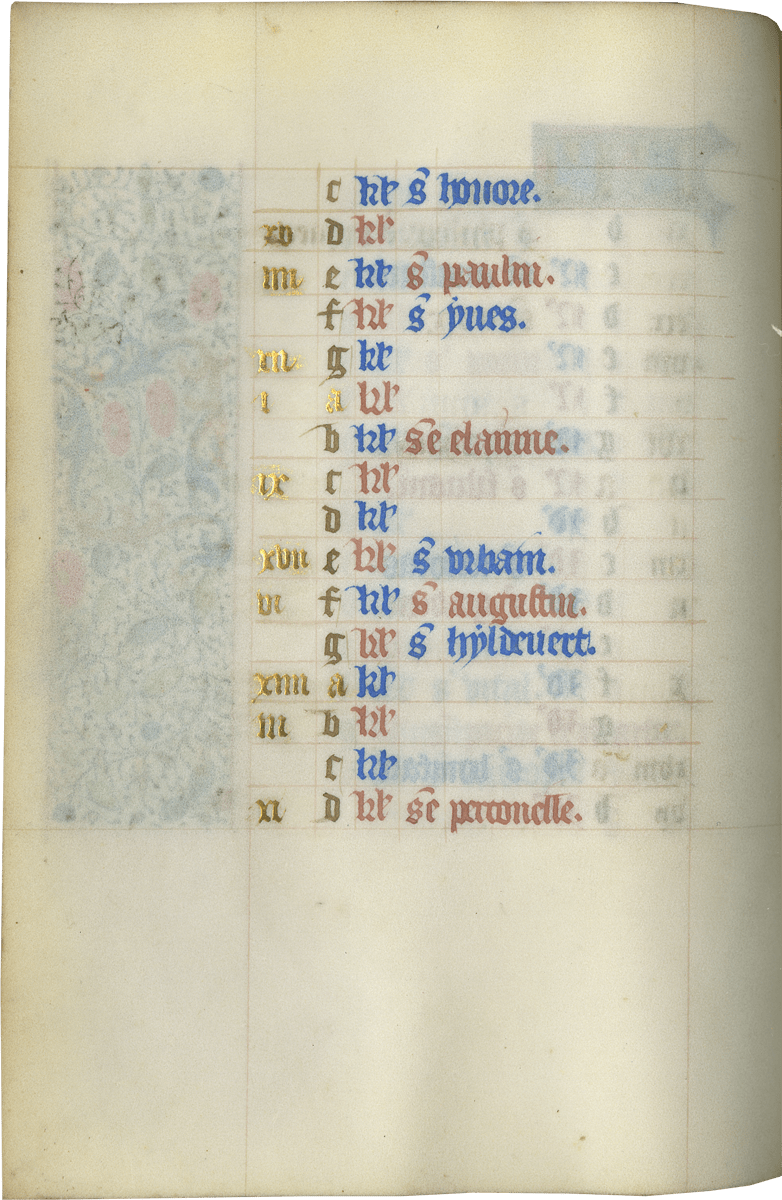 c kl' s' honore.
xv d kl'
iiii e kl' s' paulin.
f kl' s' yues.
xii g kl'
i a kl'
b kl' s'e elaimne.
ix c kl'
d kl'
xvii e kl' s' vrbain.
vi f kl' s' augustin.
g kl' s' hyldeuert.
xiiii a kl'
iii b kl'
c kl'
xi d kl' s'e perronelle.